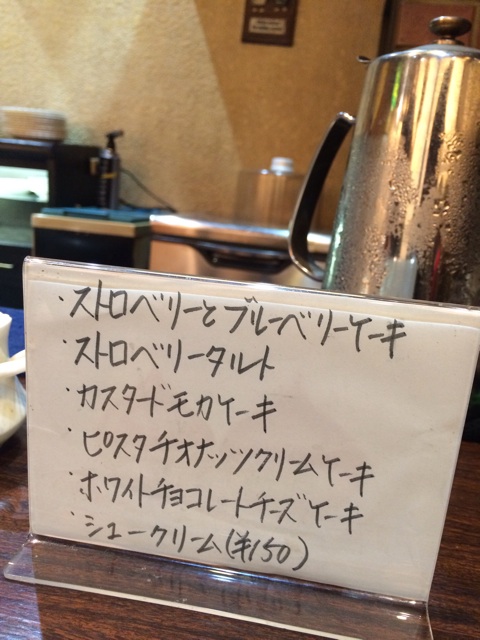 ・ストロベリーとブルーベリーケーキ
・ストロベリータルト
・カスタードモカケーキ
・ピスタチオナッツクリームケーキ
・ホワイトチョコレートチーズケーキ
・シュークリーム(¥150)